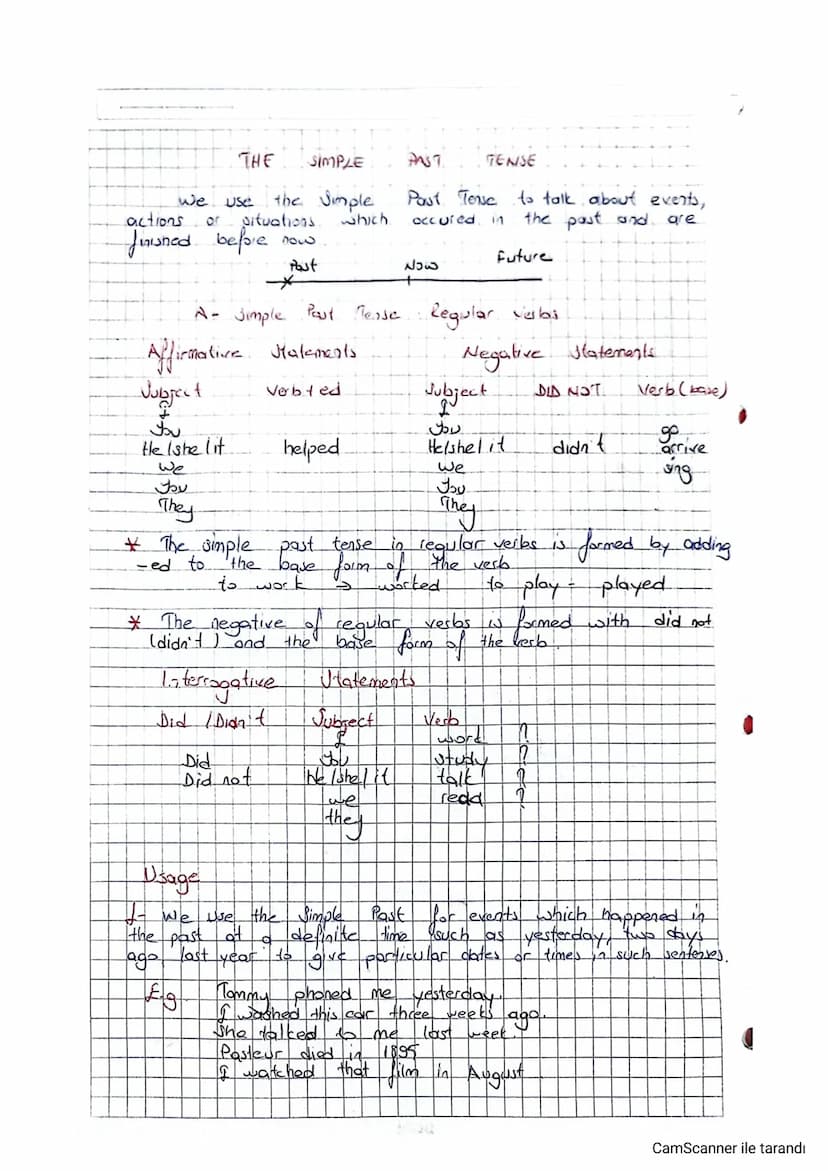 THE SIMPLE PAST TENSE
We use the Simple Past Tense to talk about events,
actions or situations which occured in the past and are
finished before now.
Past Now Future
A- Simple Past Tense : Regular verbs
Affirmative Statements Negative Statements
Subject Verb+ed Subject DID NOT Verb (base)
I I
You You go
He/she/it helped He/she/it didn't arrive
We We sing
You You
They They
* The simple past tense in regular verbs is formed by adding
-ed to the base form of the verb
to work → worked to play - played
* The negative of regular verbs is formed with did not
(didn't) and the base form of the verb.
Interrogative Statements
Did / Didn't Subject Verb
I word ?
Did You study ?
Did not He/she/it talk ?
we redd ?
they
Usage
1- We use the Simple Past for events which happened in
the past at a definite time (such as yesterday, two days
ago, last year to give particular dates or times in such sentenses.
E.g Tommy phoned me yesterday.
I washed this car three weeks ago.
She talked to me last week.
Pasteur died in 1895
I watched that film in August
CamScanner ile tarandı